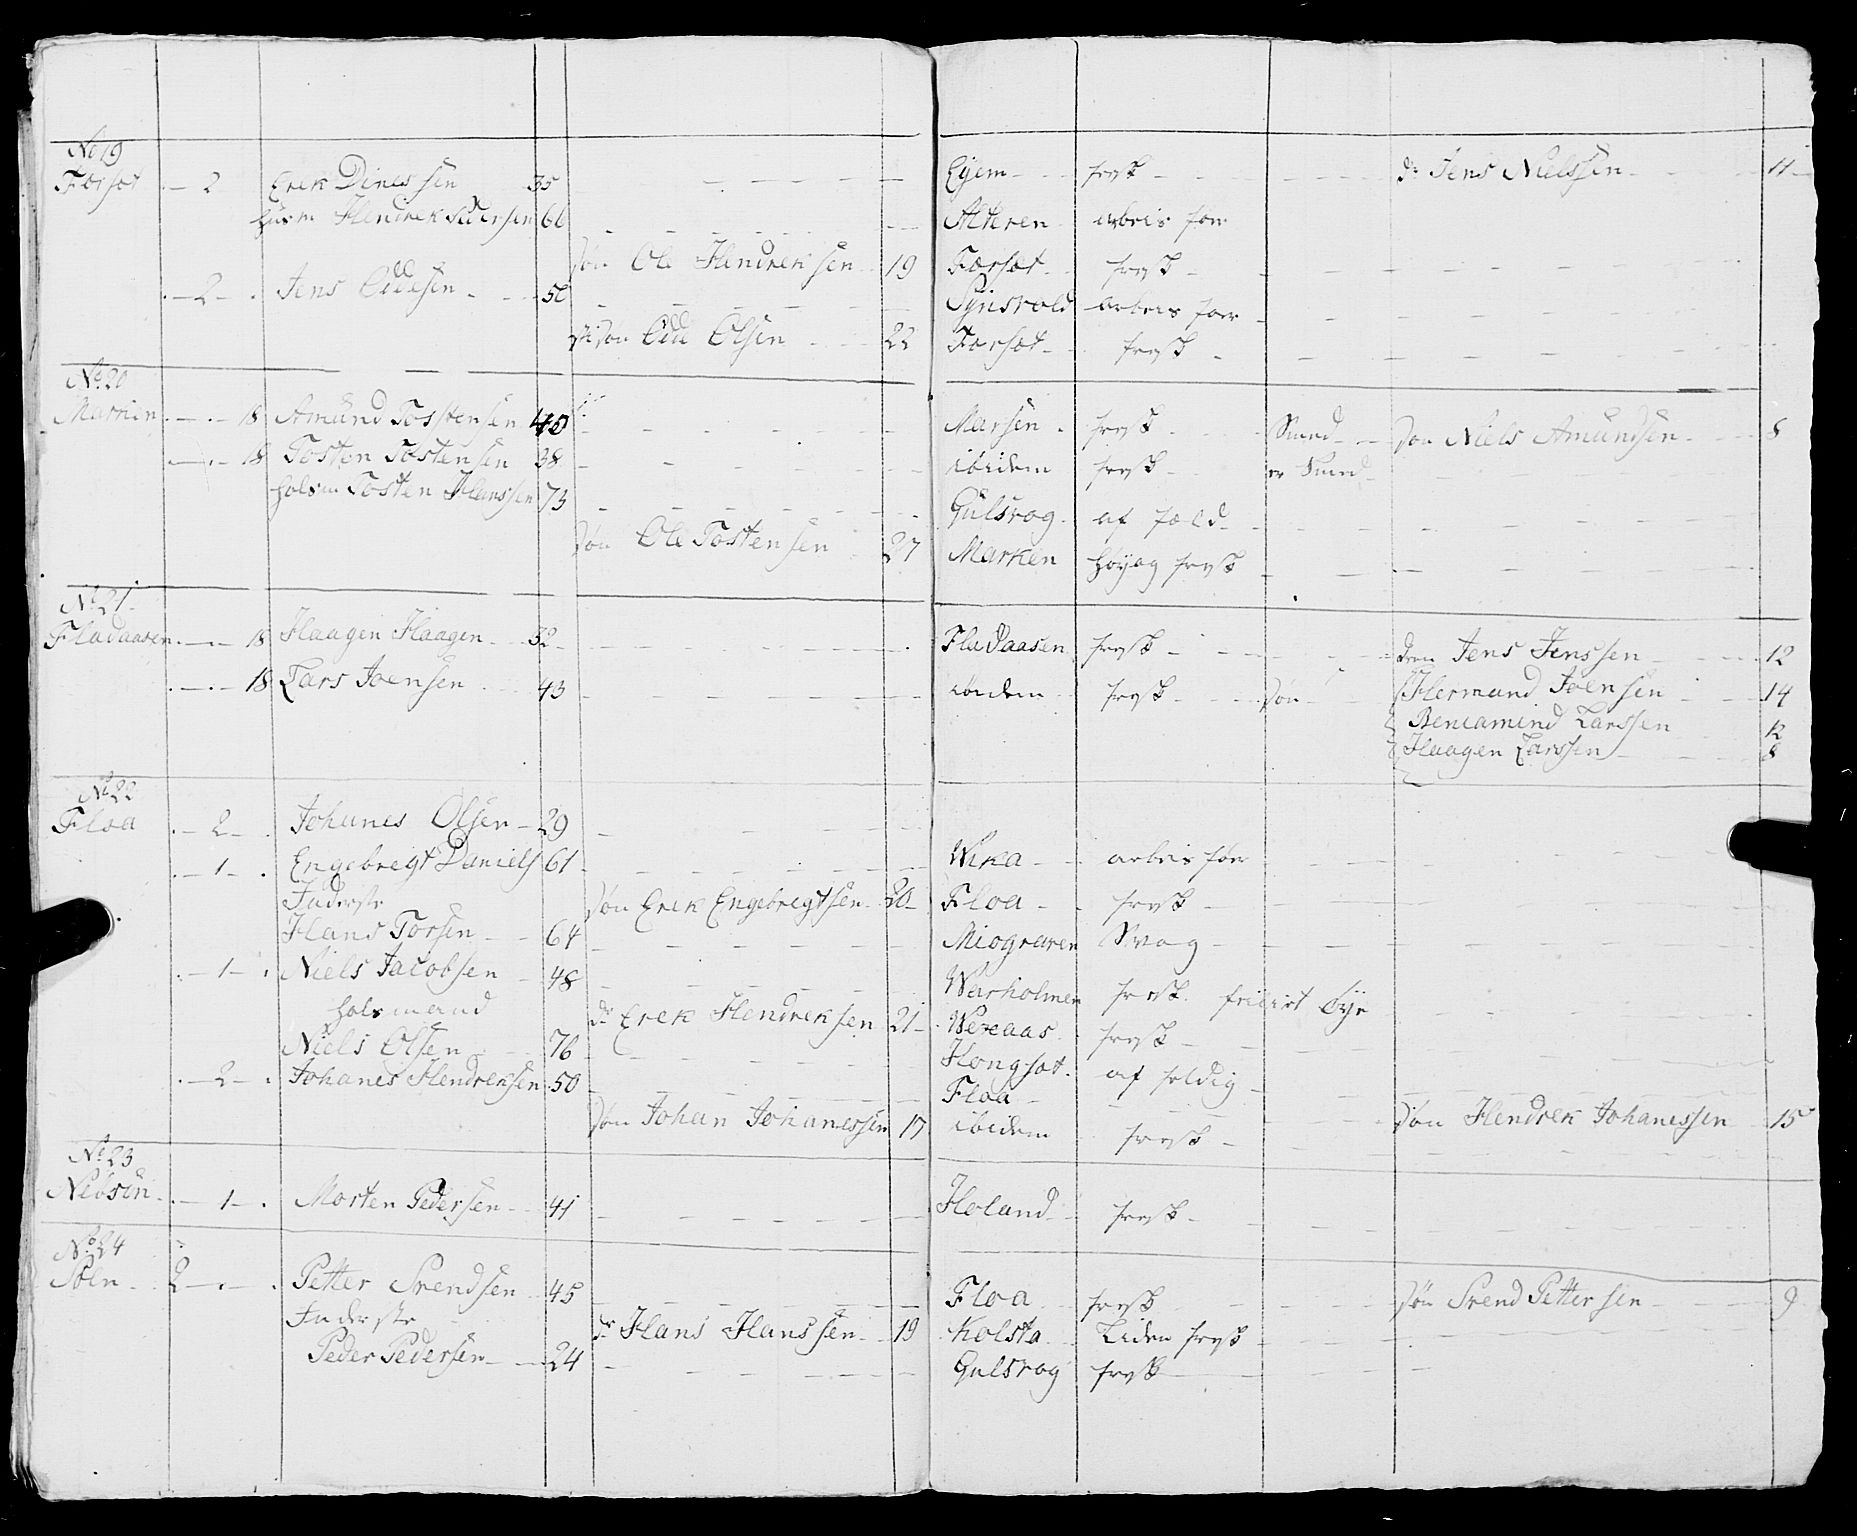 No 19
Forsot - 2 Erek Dinessen 35 - Eyem frysk - ds Jens Nielssen 11
husm Hendrek Pedersen 66 - Alteren arbeis för
søn Ole Hendreksen 19 Forsot frysk
2 Jens Oddesen 56 - Synsvold arbeis för
søn Odd Olsen 22 Forsot frysk
No 20
Marken 18 Amund Tostensen 40 - Marsen frysk Smed søn Niels Amundsen 8
18 Tosten Tostensen 38 - ibidem frysk er Smed
holsm Tosten Hanssen 73 - Gulsvog af fæld
søn Ole Tostensen 27 Marken höy og frysk
No 21
Fladaasen 18 Haagen Haagen 32 - Fladaasen frysk - Jens Jenssen 12
18 Lars Joensen 43 - ibidem frysk søn Hermand Joensen 14
Beniamind Larssen 12
Haagen Larssen 8
No 22
Floa 2 Johanes Olsen 29
1 Engebregt Daniels 61 - Wika arbeis för
Inderste søn Erek Engebregtsen 20 Floa frysk
Hans Torsen 64 - Miograven Svag
1 Niels Jacobsen 48 - Warholmen frysk
holsmand ds Erek Hendreksen 21 Wexaas frysk
Niels Olsen 76 - Hongsot af feldig
2 Johanes Hendreksen 50 - Floa
søn Johan Johanessen 17 ibidem frysk søn Hendrek Johanessen 15
No 23
Neösen 1 Morten Pedersen 41 - Holand frysk
No 24
Moen 2 Petter Svendsen 45 - Floa frysk søn Svend Pettersen 9
Inderste ds Hans Hanssen 19 Kolsta Liden frysk
Peder Pedersen 24 - Gulsvog frysk